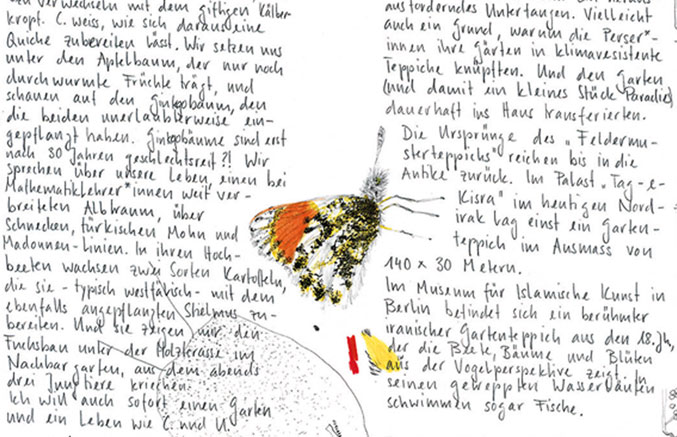 zu verwechseln mit dem giftigen Kälber-
kropf. C. weiss, wie sich daraus eine
Quiche zubereiten lässt. Wir setzen uns
unter den Apfelbaum, der nur noch
durchwurmte Früchte trägt, und
schauen auf den Ginkgobaum, den
die beiden unerlaubterweise ein-
gepflanzt haben. Ginkgobäume sind erst
nach 30 Jahren geschlechtsreif?! Wir
sprechen über unsere Leben, einen bei
Mathematiklehrer*innen weit ver-
breiteten Albtraum, über
Schnecken, türkischen Mohn und
Madonnen-Linien. In ihren Hoch-
beeten wachsen zwei Sorten Kartoffeln,
die sie - typisch westfälisch - mit dem
ebenfalls angepflanzten Stielmus zu-
bereiten. Und sie zeigen mir den
Fuchsbau unter der Holzterrasse im
Nachbargarten, aus dem abends
drei Jungtiere kriechen.
Ich will auch sofort einen Garten
und ein Leben wie C. und U.
ausforderndes Untertangen. Vielleicht
auch ein Grund, warum die Perser*-
innen ihre Gärten in klimaresistente
Teppiche knüpften. Und den Garten
(und damit ein kleines Stück Paradies)
dauerhaft ins Haus transferierten.
Die Ursprünge des „Feldermu-
sterteppichs" reichen bis in die
Antike zurück. Im Palast „Taq-e-
Kisra" im heutigen Nord-
irak lag einst ein Garten-
teppich im Ausmass von
140 x 30 Metern.
Im Museum für Islamische Kunst in
Berlin befindet sich ein berühmter
iranischer Gartenteppich aus dem 18. Jh,
der die Beete, Bäume und Blüten
aus der Vogelperspektive zeigt. In
seinen geweppten Wasserläufen
schwimmen sogar Fische.